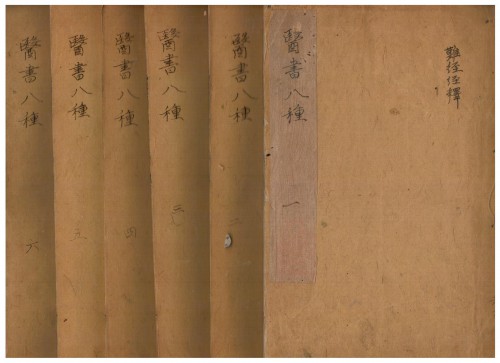 難經經釋
醫書八種
一
醫書八種
二
醫書八種
三
醫書八種
四
醫書八種
五
醫書八種
六